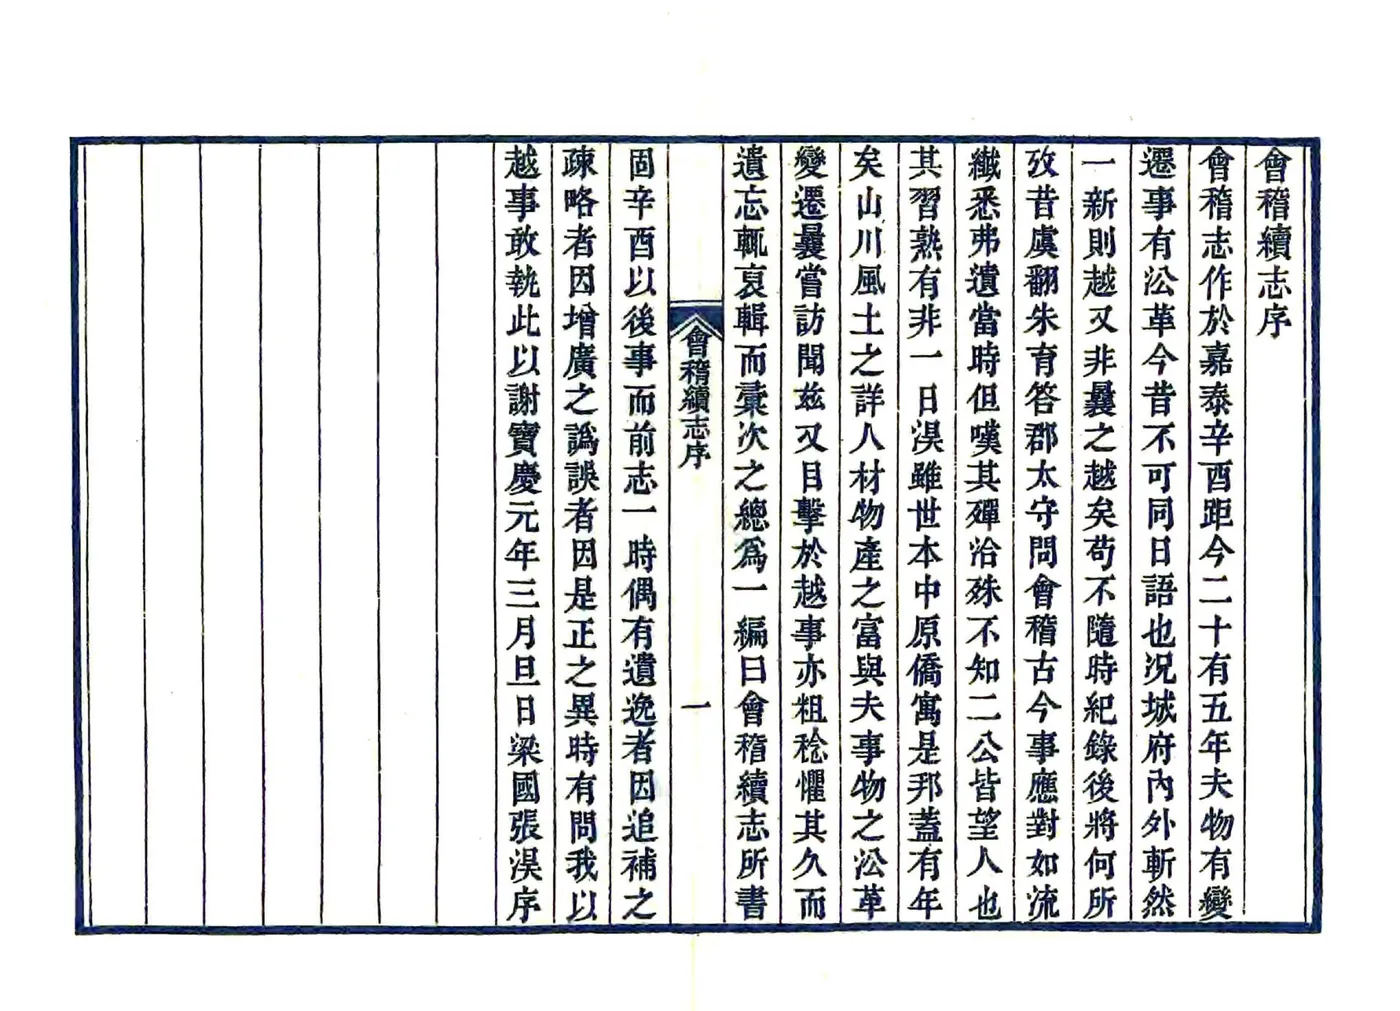 會稽續志序
會稽志作於嘉泰辛酉距今二十有五年夫物有變
遷事有㳂革今昔不可同日語也況城府內外斬然
一新則越又非曩之越矣苟不隨時紀錄後將何所
攷昔虞翻朱育答郡太守問會稽古今事應對如流
纎悉弗遺當時但嘆其殫洽殊不知二公皆望人也
其習熟有非一日淏雖世本中原僑寓是邦蓋有年
矣山川風土之詳人材物產之富與夫事物之㳂革
變遷曩嘗訪聞兹又目擊於越事亦粗稔懼其久而
遺忘輒裒輯而彚次之總爲一編曰會稽續志所書
會稽續志序
一
固辛酉以後事而前志一時偶有遺逸者因追補之
疎略者因增廣之譌誤者因是正之異時有問我以
越事敢執此以謝寶慶元年三月旦日梁國張淏序